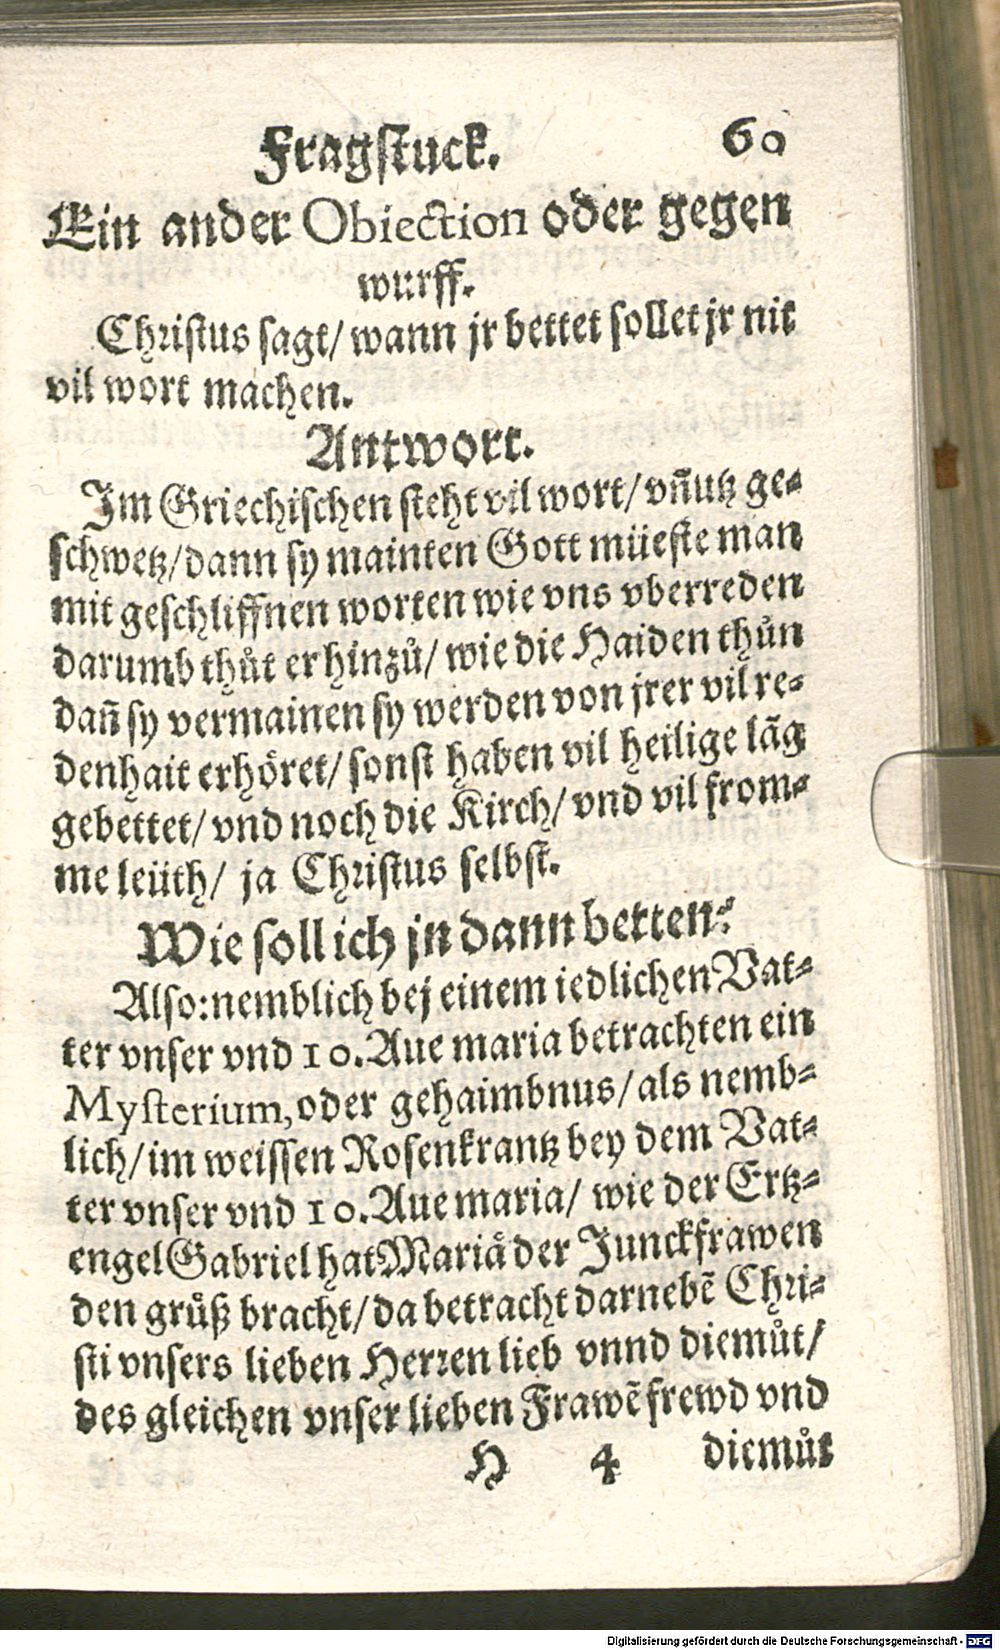 Fragstuck. 60
Ein ander Obiection oder gegen
wurff.
Christus sagt/ wann jr bettet sollet jr nit
vil wort machen.
Antwort.
Im Griechischen steht vil wort/ vñutz ge⸗
schwetz/ dann sy mainten Gott müeste man
mit geschliffnen worten wie vns vberreden
darumb thůt er hinzů/ wie die Haiden thůn
dañ sy vermainen sy werden von jrer vil re⸗
denhait erhöret/ sonst haben vil heilige lãg
gebettet/ vnd noch die Kirch/ vnd vil from⸗
me leüth/ ja Christus selbst.
Wie soll ich jn dann betten?
Also: nemblich bej einem iedlichen Vat⸗
ter vnser vnd 10. Aue maria betrachten ein
Mysterium, oder gehaimbnus/ als nemb⸗
lich/ im weissen Rosenkrantz bey dem Vat⸗
ter vnser vnd 10. Aue maria/ wie der Ertz⸗
engel Gabriel hat Mariå der Junckfrawen
den grůß bracht/ da betracht darnebẽ Chri⸗
sti vnsers lieben Herren lieb vnnd diemůt/
des gleichen vnser lieben Frawẽ frewd vnd
H 4 diemůt
Digitalisierung gefördert durch die Deutsche Forschungsgemeinschaft - DFG